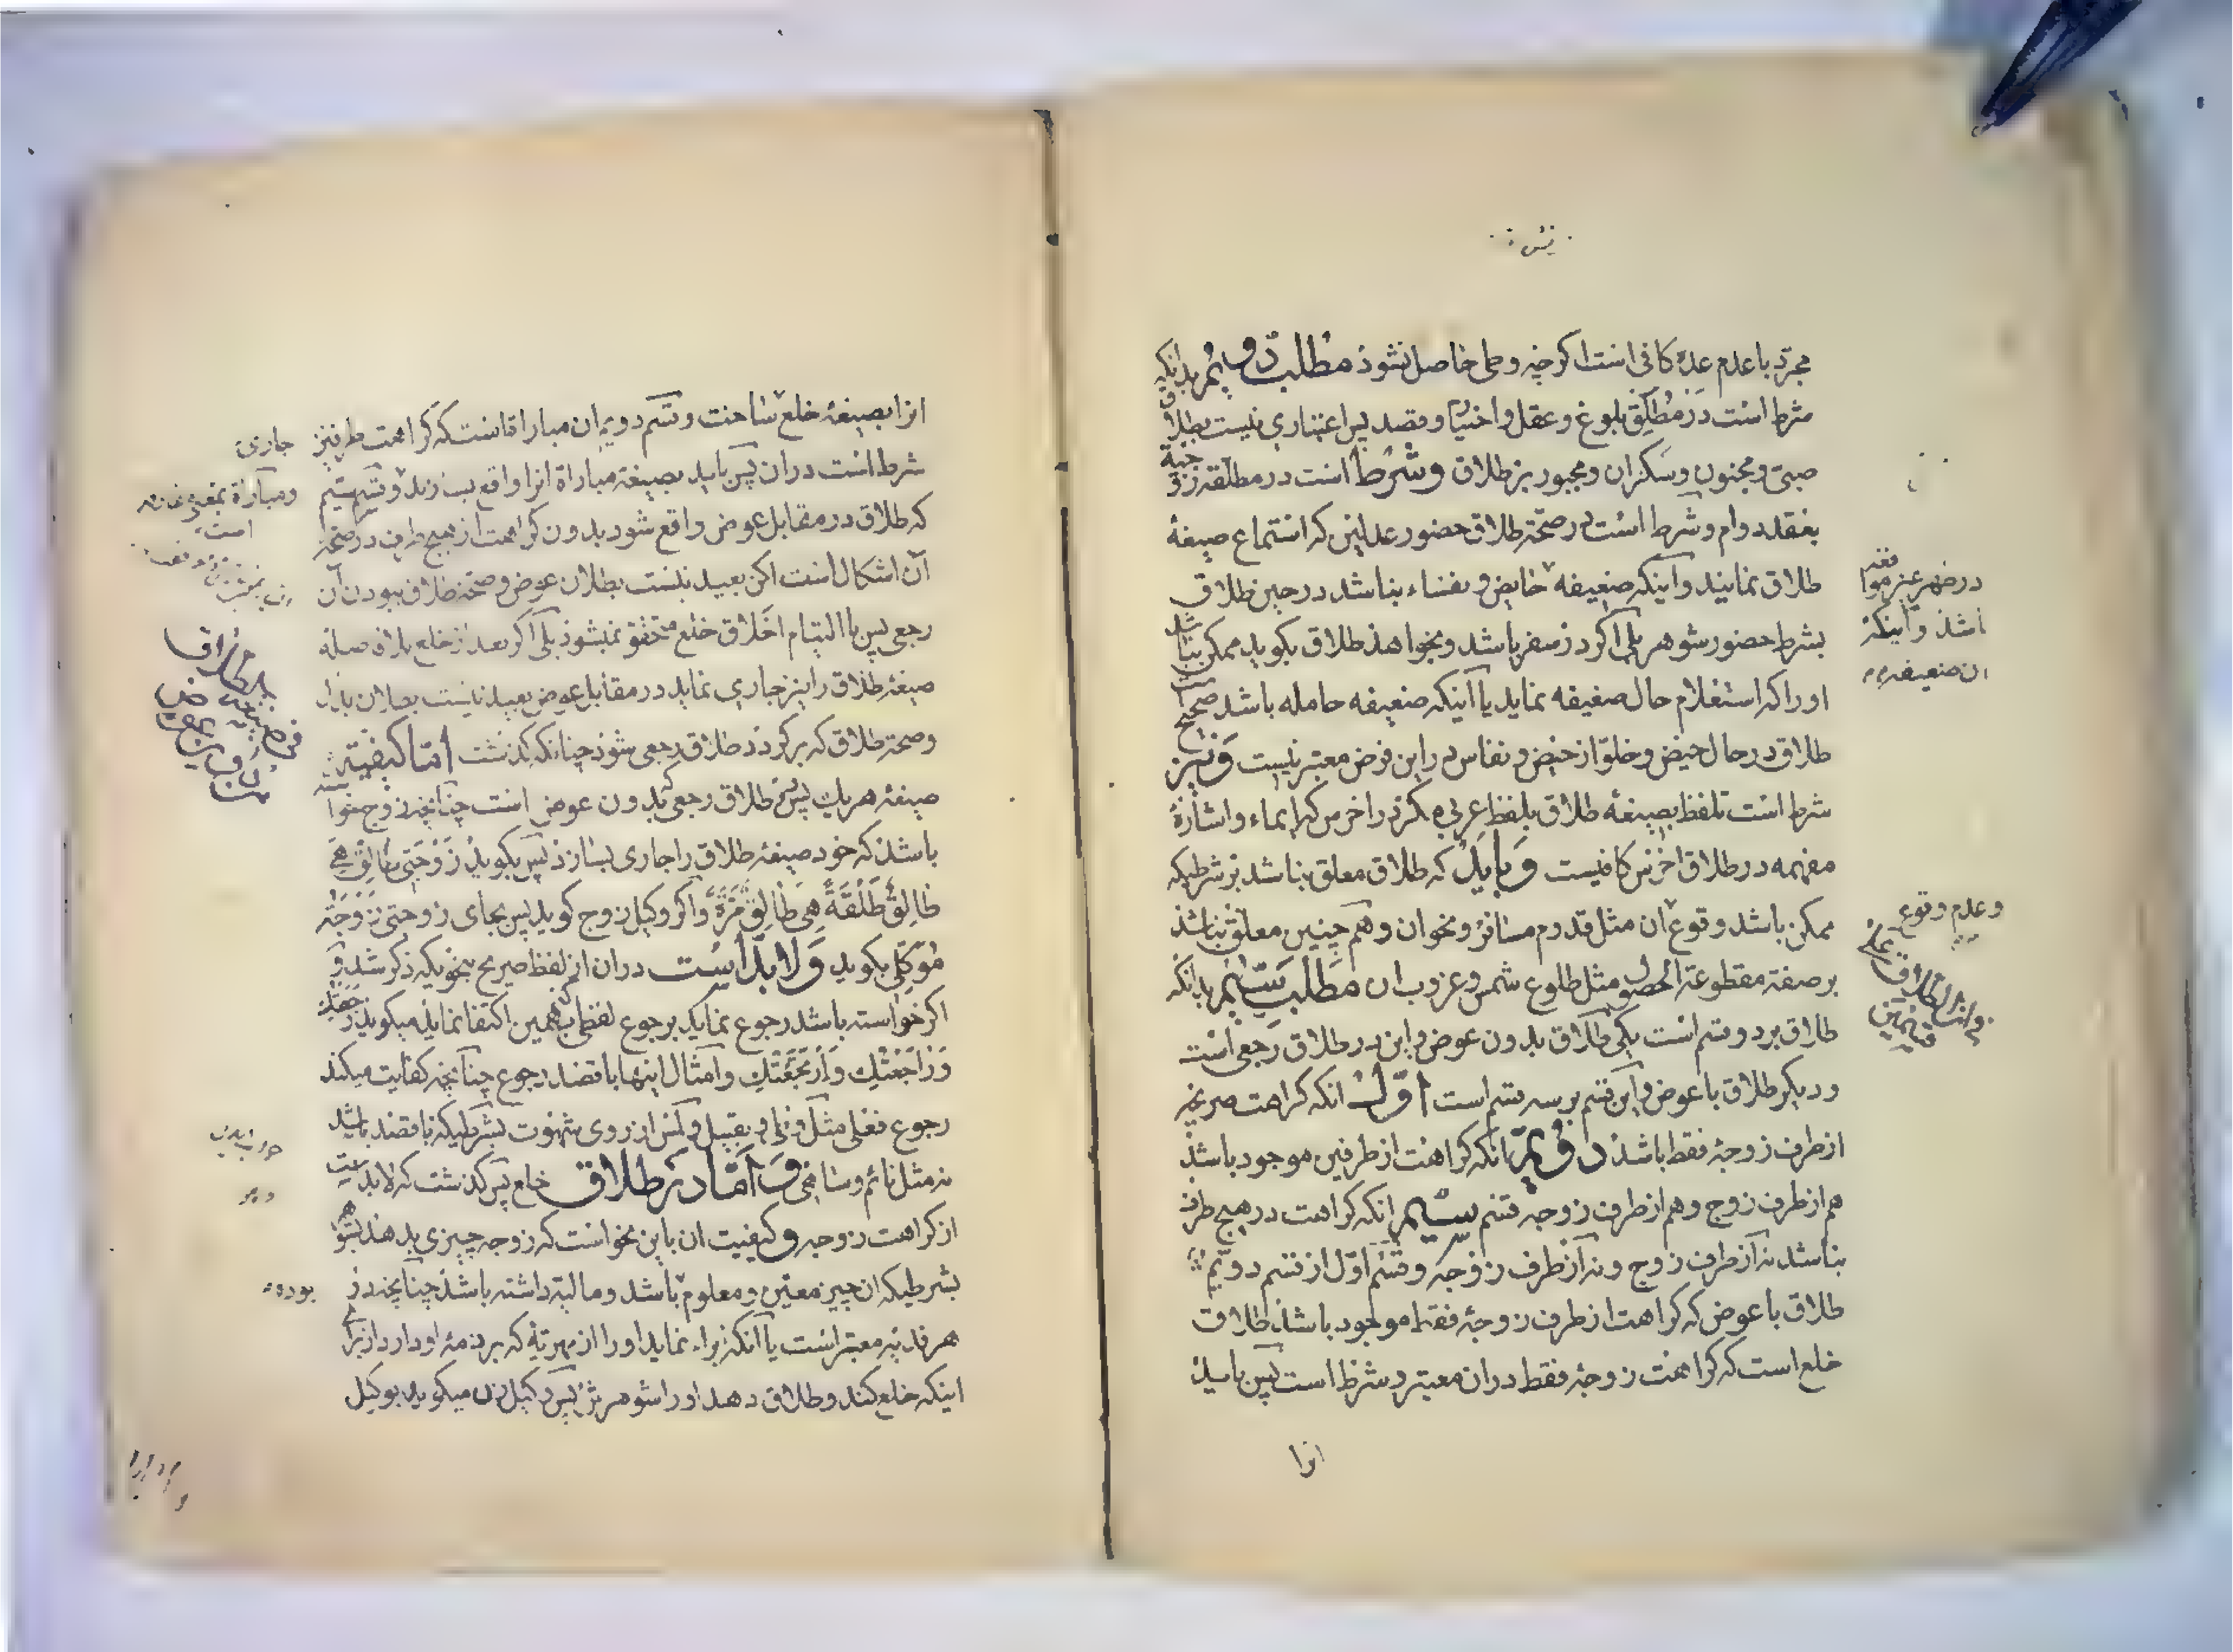 مجرّد با عدم عدّه کافی است اگر چه وطی حاصل نشود مطلب دویّم بدانکه
شرط است در مُطلِّق بلوغ و عقل و اختیار و قصد پس اعتباری نیست بطلاق
صبیّ و مجنون و سکران و مجبور بر طلاق و شرط است در مطلّقه زوجیّة
بعقد دوام و شرط است در صحّة طلاق حضور عدلین که استماع صیغهٔ
طلاق نمایند و اینکه ضعیفه حایض و نفساء نباشد در حین طلاق
بشرط حضور شوهر بلی اگر در سفر باشد و بخواهد طلاق بگوید ممکن نباشد
او را که استعلام حال ضعیفه نماید یا اینکه ضعیفه حامله باشد صحیح است
طلاق در حال حیض و خلوّ از حیض و نفاس در این فرض معتبر نیست و نیز
شرط است تلفظ بصیغهٔ طلاق بلفظ عربی مگر در اخرس که ایماء و اشارهٔ
مفهمه در طلاق اخرس کافیست و باید که طلاق معلق نباشد بر شرطیکه
ممکن باشد وقوع آن مثل قدوم مسافر و نحو ان و همچنین معلّق نباشد
بر صفة مقطوعة الحصول مثل طلوع شمس و غروب ان مطلب سیّم بدانکه
طلاق بر دو قسم است یکی طلاق بدون عوض و این در طلاق رجعی است
و دیگر طلاق با عوض و این قسم بر سه قسم است اوّل انکه کراهت صریحه
از طرف زوجهٔ فقط باشد دویّم انکه کراهت از طرفین موجود باشد
هم از طرف زوج و هم از طرف زوجه قسم سیّم انکه کراهت در هیچ طرف
نباشد نه از طرف زوج و نه از طرف زوجه و قسم اوّل از قسم دویّم
طلاق با عوض که کراهت از طرف زوجهٔ فقط موجود باشد طلاق
خلع است که کراهت زوجهٔ فقط در ان معتبر و شرط است پس باید
انرا
در طهر غیر مواقعه
باشد و اینکه
ان ضعیفه
و عدم وقوع
انرا بصیغهٔ خلع ساخت و قسم دویم ان مباراة است که کراهت طرفین
شرط است در ان پس باید بصیغهٔ مباراة انرا واقع بسازند و قسم سیّم
که طلاق در مقابل عوض واقع شود بدون کراهت از هیچ طرف در صحّة
آن اشکال است لکن بعید نیست بطلان عوض و صحّة طلاق و بودن آن
رجعی پس با التیام اخلاق خلع متحقق نمیشود بلی اگر بعد از خلع بلا فاصله
صیغهٔ طلاق را نیز جاری نماید در مقابل عوض بعید نیست بطلان بذل
و صحة طلاق که برگردد طلاق رجعی شود چنانکه گذشت امّا کیفیّة
صیغهٔ هر یک پس در طلاق رجعی که بدون عوض است چنانچه زوج خواسته
باشد که خود صیغهٔ طلاق را جاری بسازد پس بگوید زَوْجَتی طالِقٌ هِیَ
طالِقٌ طَلْقَةً هِیَ طالِقٌ مَرَّةً و اگر وکیل زوج گوید پس بجای زوجتی زَوْجَةُ
مُوَکِّلی بگوید و لا بدّ است در ان از لفظ صریح بنحویکه ذکر شد و
اگر خواسته باشد رجوع نماید برجوع لفظی بهمین اکتفا نماید که میگوید رَجَعْتُكِ
وَ رَاجَعْتُكِ وَ اِرْتَجَعْتُكِ و امثال اینها با قصد رجوع چنانچه کفایت میکند
رجوع فعلی مثل وطی و تقبیل و لمس از روی شهوت بشرطیکه با قصد باشد
نه مثل نائم و ساهی و امّا در طلاق خلع پس گذشت که لا بد است
از کراهت زوجه و کیفیت ان باین نحو است که زوجه چیزی بدهد بشوهر
بشرطیکه ان چیز معیّن و معلوم باشد و مالیة داشته باشد چنانچه در
هر فدیه معتبر است یا آنکه ابراء نماید او را از مهریّه که بر ذمهٔ او دارد از برای
اینکه خلع کند و طلاق دهد او را شوهرش پس وکیل زن میگوید بوکیل
جاری
و مباراة بمعنی
است
بوده